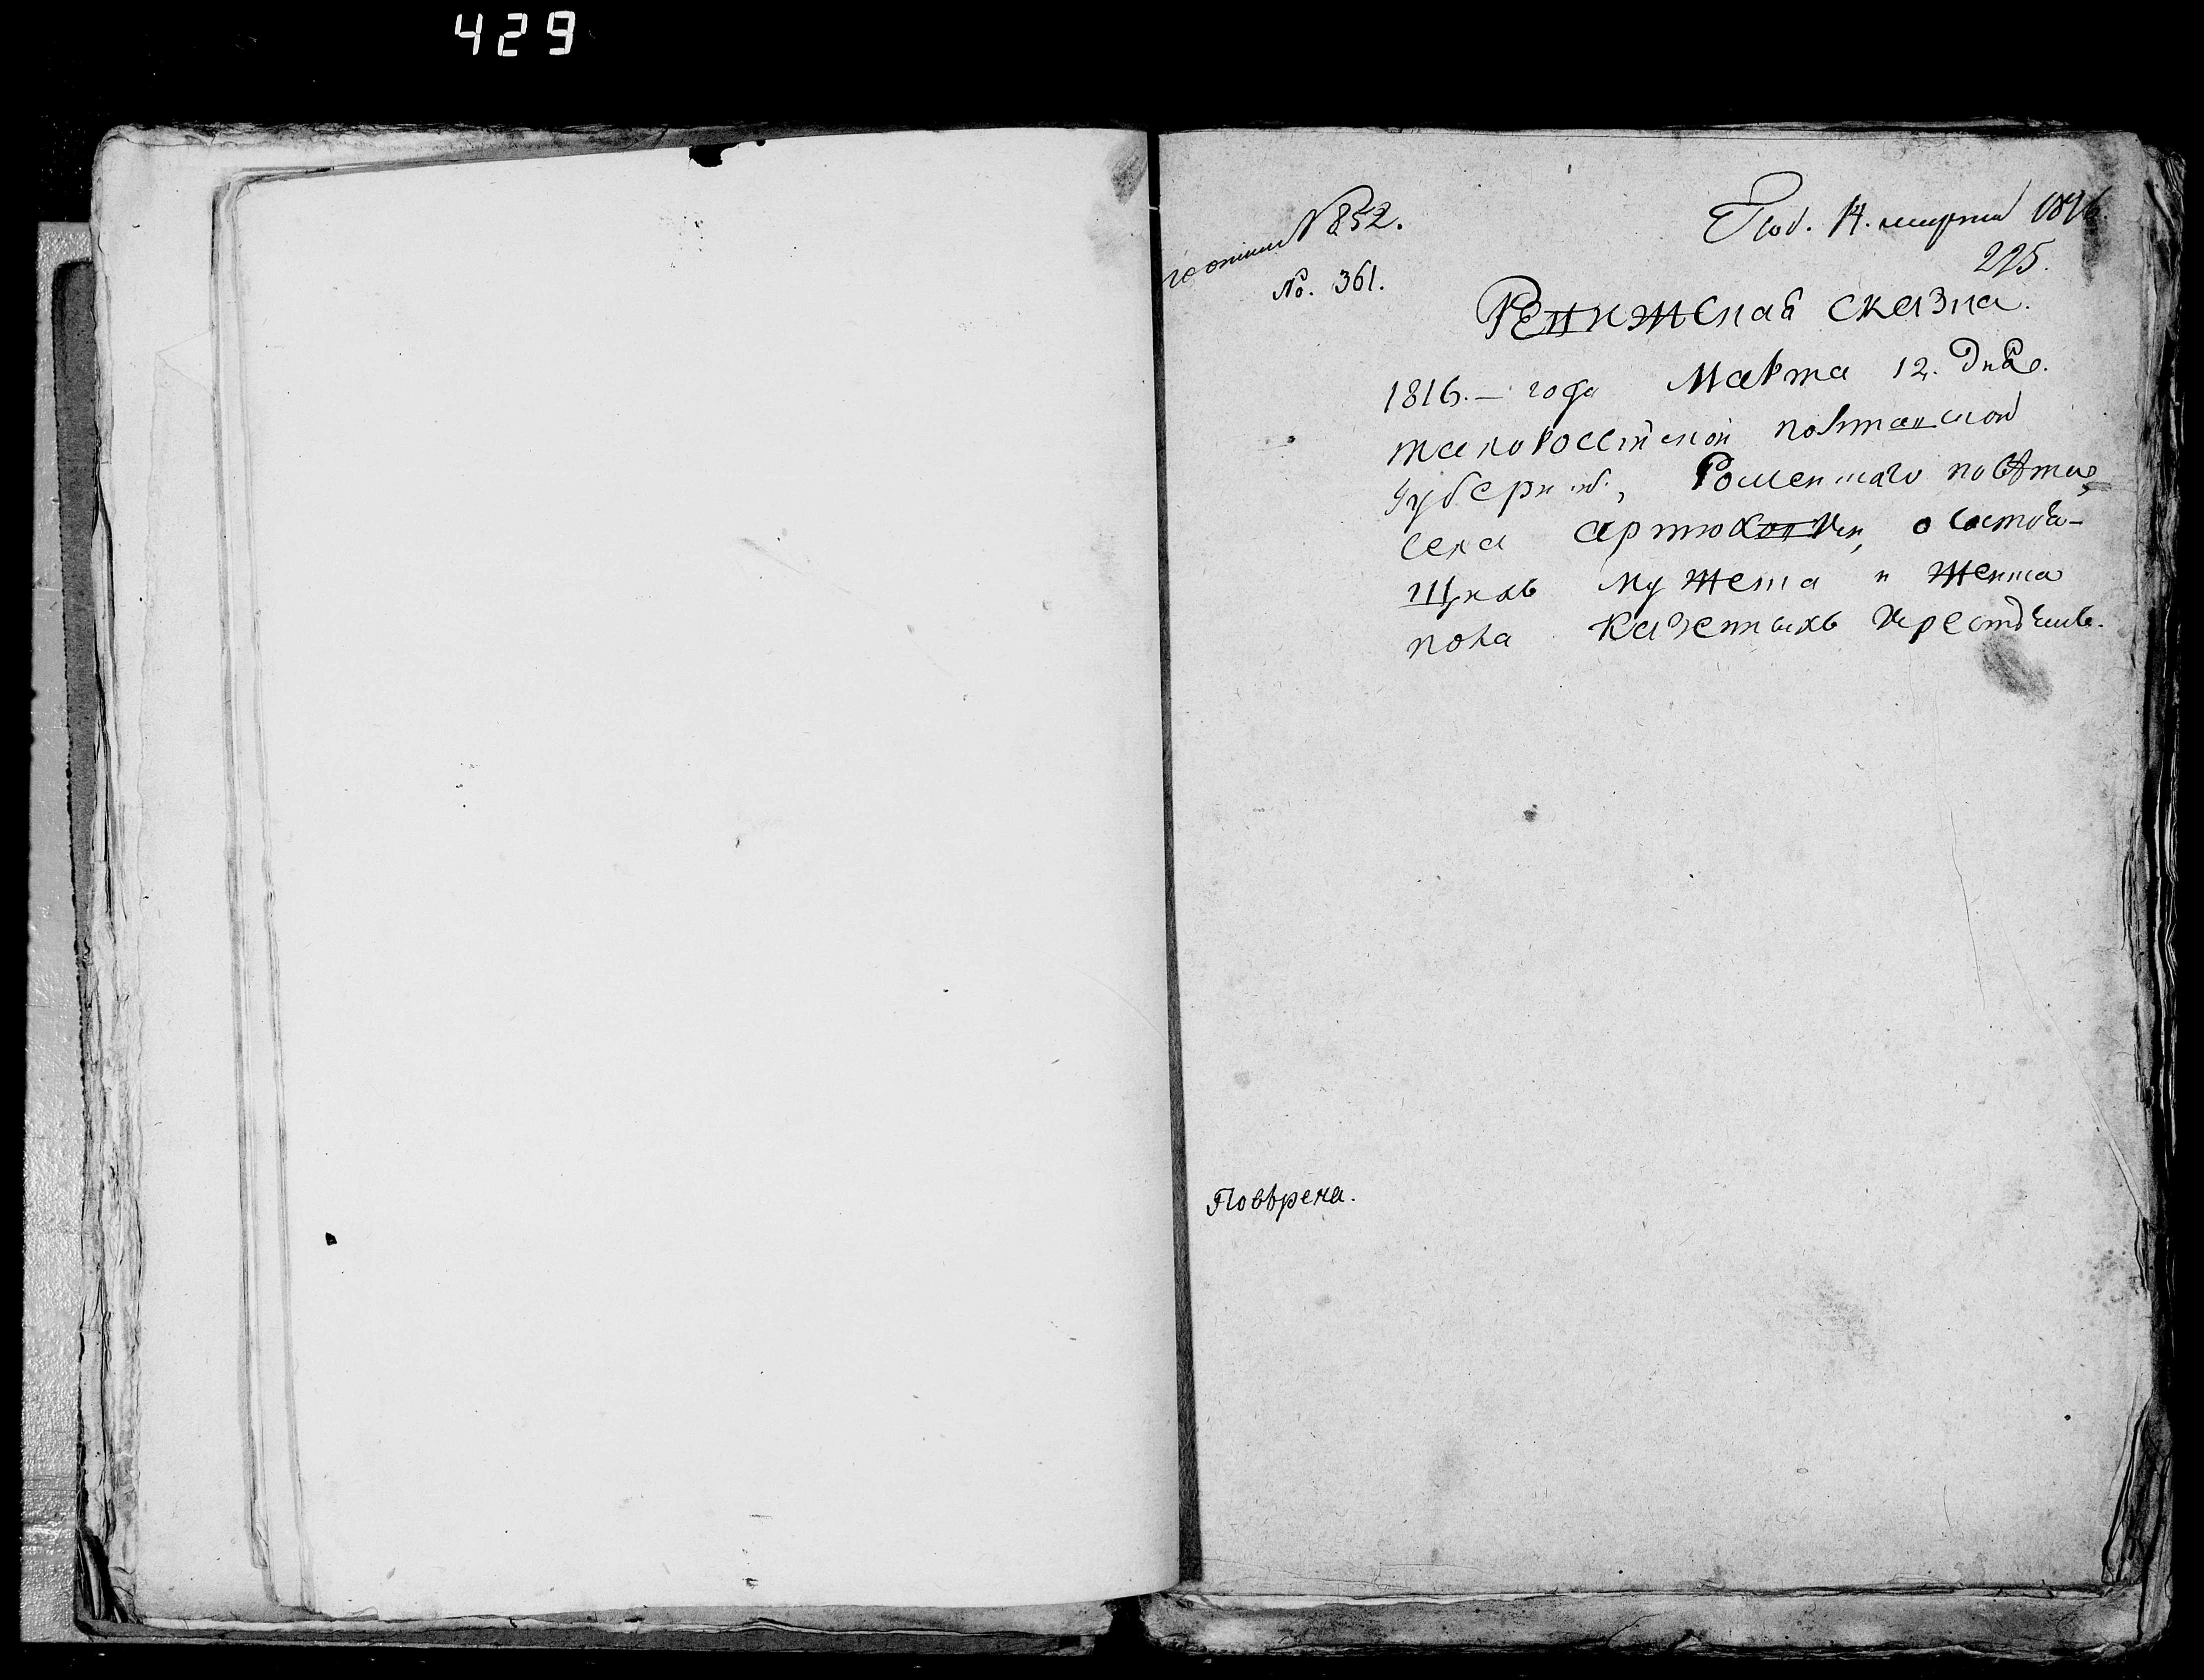 429
N 852.
Под. 14. марта 1816
No. 361.
225.
Ревижская сказка.
1816. – года Марта 12. Дня.
малоросiйской полтавской
губернiи, Роменскаго повѣта,
села Артюховки, о состоя-
щихъ мужеска и женска
пола казенныхъ крестьянъ.
Повѣрена.